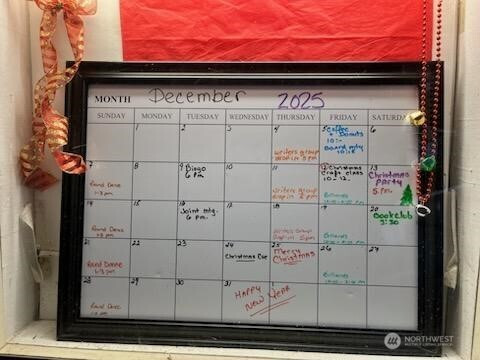 MONTH December 2025
SUNDAY MONDAY TUESDAY WEDNESDAY THURSDAY FRIDAY SATURDAY
1 2 3 4 5 6
Coffee
+ Donuts
10:-
Board mtg
writers group
drop in 5 pm
7 8 9 10 11 12 13
Bingo
6 Pm
Christmas
craft class
10-12.
Christmas
Party
5 Pm.
Round Dance
1-3 pm
writers group
drop in 5 pm
14 15 16 17 18 19 20
Joint mtg.
6 pm.
Book Club
3:30
Round Dance
1-3 pm
writers group
drop in 5 pm
Billiards
21 22 23 24 25 26 27
Christmas Eve
Merry
Christmas
Round Dance
1-3 pm
Billiards
28 29 30 31
HAPPY
NEW YEAR
Round Dance
NORTHWEST